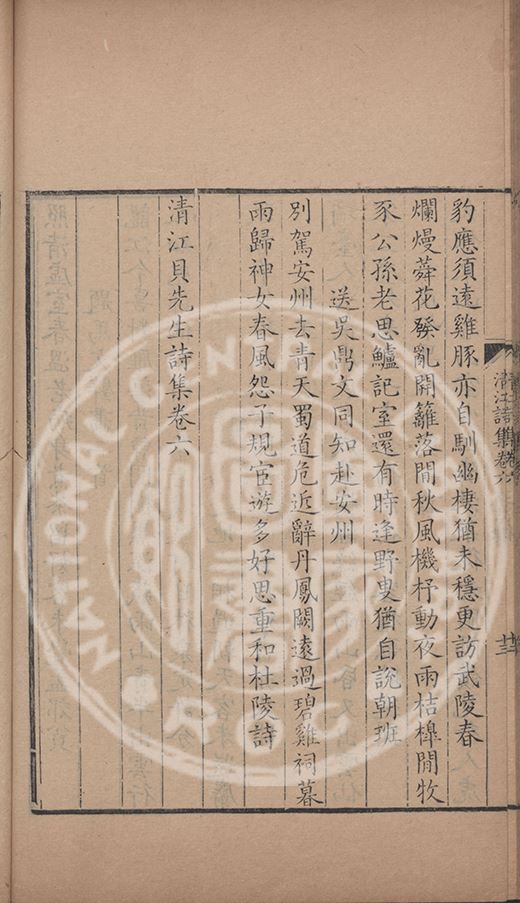 清江詩集卷六
豹應須遠雞豚亦自馴幽棲猶未穩更訪武陵春
爛熳蕣花發亂開籬落間秋風機杼動夜雨桔橰閒牧
豕公孫老思鱸記室還有時逢野叟猶自說朝班
送吳鼎文同知赴安州
別駕安州去青天蜀道危近辭丹鳳闕遠過碧雞祠暮
雨歸神女春風怨子規宦遊多好思重和杜陵詩
清江貝先生詩集卷六